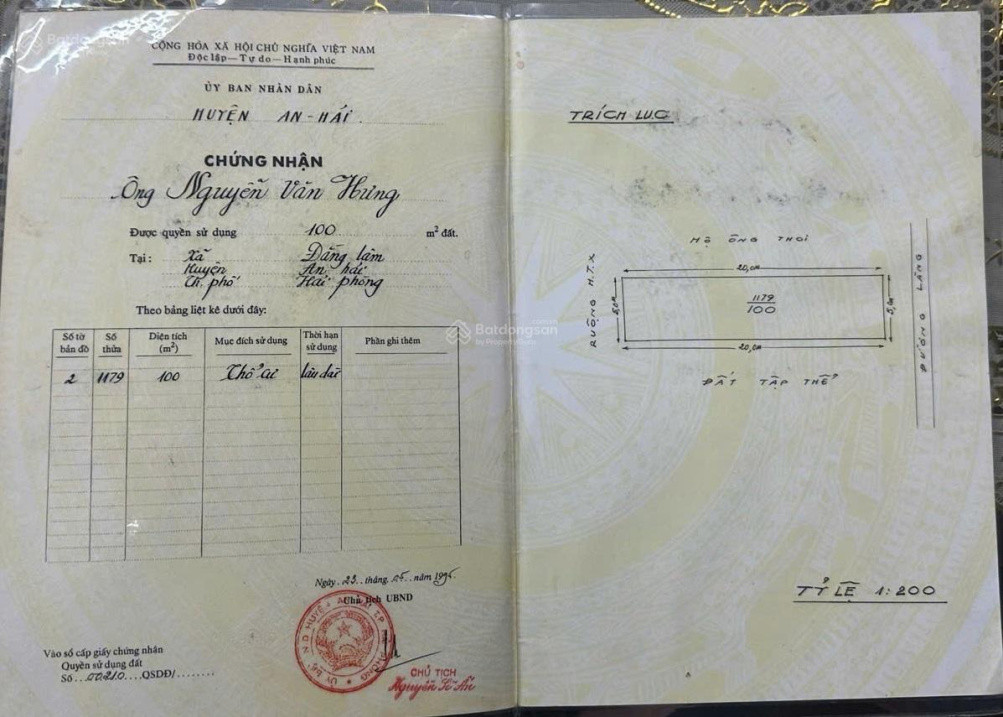 CỘNG HÒA XÃ HỘI CHỦ NGHĨA VIỆT NAM
Độc lập — Tự do — Hạnh phúc
ỦY BAN NHÂN DÂN
HUYỆN AN-HẢI
CHỨNG NHẬN
Ông Nguyễn Văn Hưng
Được quyền sử dụng 100 m² đất.
Tại : Xã Đằng lâm
Huyện An hải
Th. phố Hải phòng
Theo bảng liệt kê dưới đây:
Số tờ bản đồ Số thửa Diện tích (m²) Mục đích sử dụng Thời hạn sử dụng Phần ghi thêm
2 1179 100 Thổ cư lâu dài
Ngày 23 tháng 05 năm
Chủ tịch UBND
CHỦ TỊCH
Nguyễn
Vào sổ cấp giấy chứng nhận
Quyền sử dụng đất
Số 00210 QSDĐ/
TRÍCH LỤC
HỘ ÔNG THOI
20,0m
RUỘNG H.T.X
5,0m
1179
100
5,0m
ĐƯỜNG LÀNG
20,0m
ĐẤT TẬP THỂ
TỶ LỆ 1:200
Batdongsan
by PropertyGuru
Batdongsan